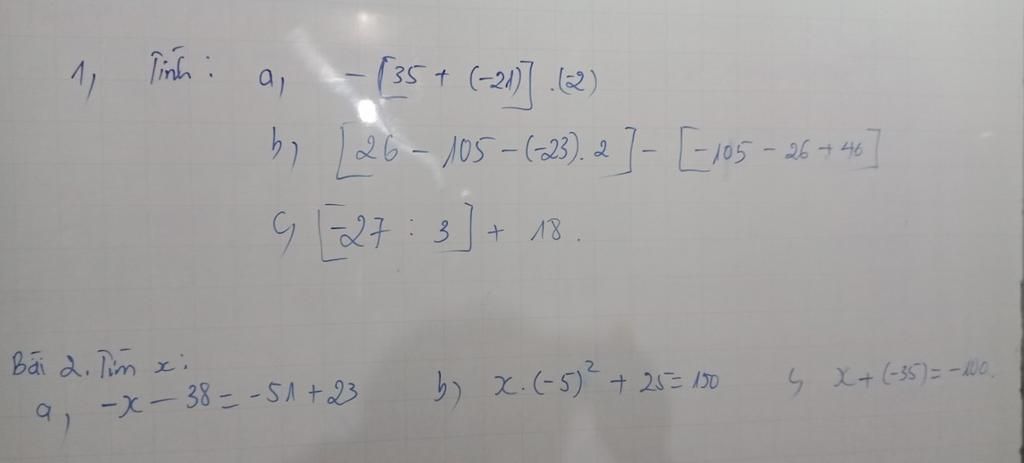 1, Tính: a, -[35 + (-21)].(-2)
b, [26 - 105 - (-23).2] - [-105 - 26 + 46]
c, [-27 : 3] + 18.
Bài 2. Tìm x:
a, -x - 38 = -51 + 23 b) x.(-5)² + 25 = 150 c, x + (-35) = -100.